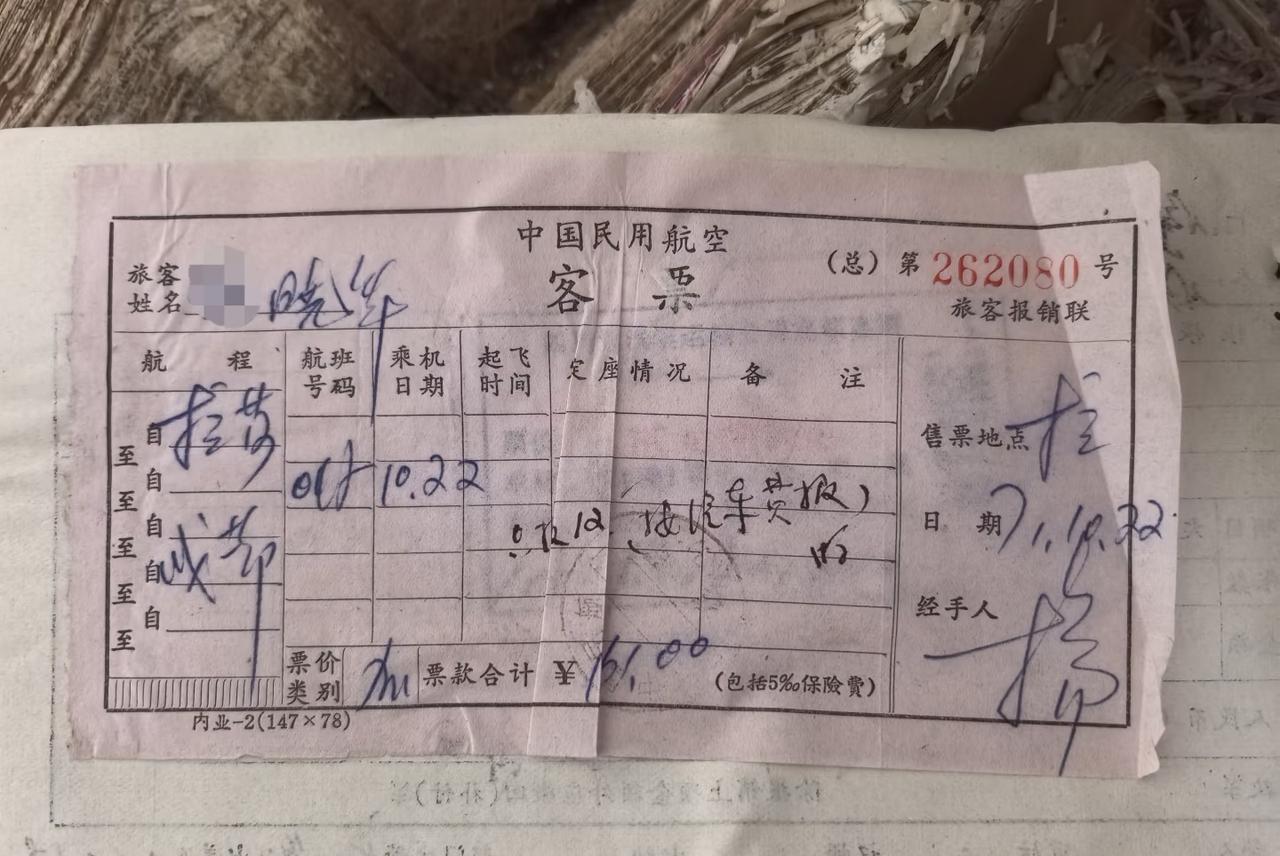 中国民用航空
客票
(总) 第 262080 号
旅客报销联
旅客姓名 晓华
航程 航班号码 乘机日期 起飞时间 定座情况 备注
自 拉萨
至
自
至 10.22
自 成都
至
自
至
自
至
售票地点 拉
日期 71.10.22
经手人
票价类别 票款合计 ¥ 151.00 (包括5‰保险費)
内业-2(147×78)